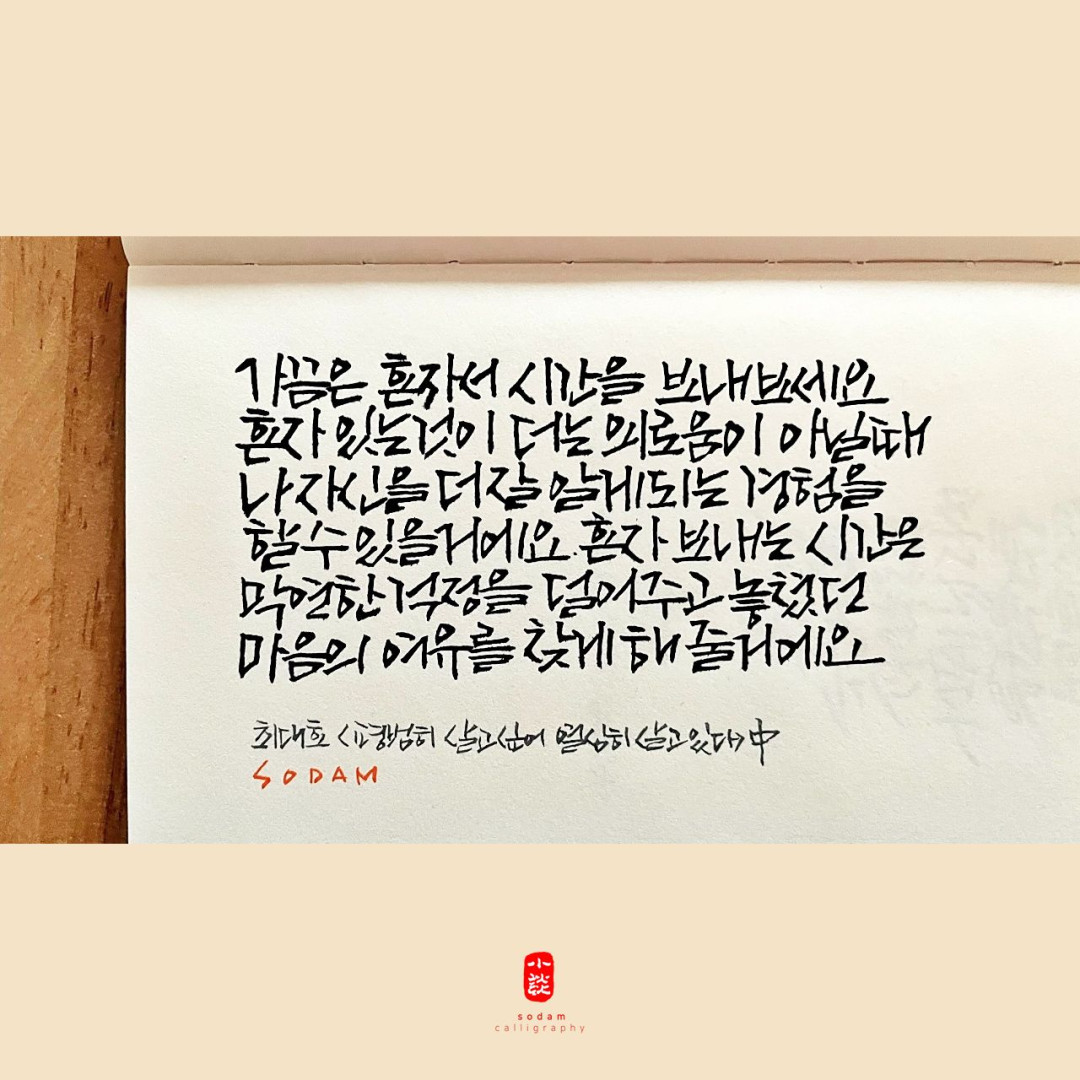 가끔은 혼자서 시간을 보내보세요
혼자 있는것이 더는 외로움이 아닐때
나 자신을 더 잘 알게되는 경험을
할 수 있을거에요. 혼자 보내는 시간은
막연한 걱정을 덜어주고 놓쳤던
마음의 여유를 찾게 해 줄거에요
최대호 <평범히 살고싶어 열심히 살고있다> 中
SODAM
小談
sodam
calligraphy